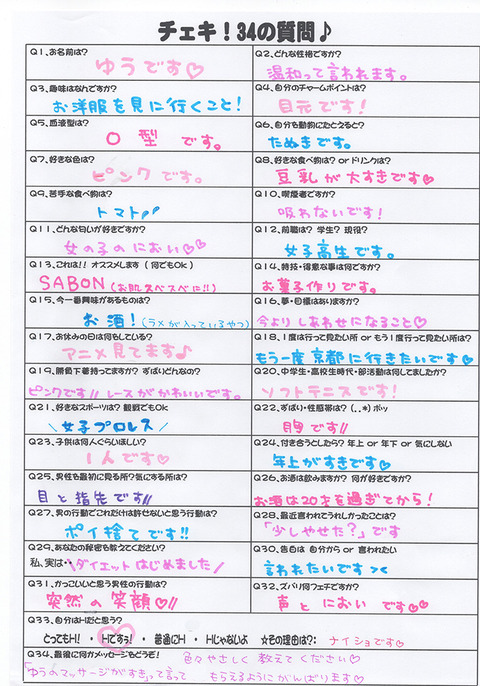 チェキ!34の質問♪
Q1、お名前は?
ゆうです♡
Q2、どんな性格ですか?
温和って言われます。
Q3、趣味はなんですか?
お洋服を見に行くこと!
Q4、自分のチャームポイントは?
目元です!
Q5、血液型は?
O型です。
Q6、自分を動物にたとえると?
たぬきです。
Q7、好きな色は?
ピンクです。
Q8、好きな食べ物は? or ドリンクは?
豆乳が大すきです♡
Q9、苦手な食べ物は?
トマト
Q10、喫煙者ですか?
吸わないです!
Q11、どんな匂いが好きですか?
女の子のにおい♡
Q12、前職は? 学生? 現役?
女子高生です。
Q13、これは!! オススメします (何でもOk)
SABON(お肌スベスベに!!)
Q14、特技・得意な事は何ですか?
お菓子作りです。
Q15、今一番興味があるものは?
お酒!(ラメが入っているやつ)
Q16、夢・目標はありますか?
今よりしあわせになること♡
Q17、お休みの日は何をしている?
アニメ見てます♪
Q18、1度は行って見たい所 or もう1度行って見たい所は?
もう一度京都に行きたいです♡
Q20、中学生・高校生時代・部活動は何してましたか?
ソフトテニスです!
Q21、好きなスポーツは? 観戦でもOK
\女子プロレス/
Q23、子供は何人ぐらいほしい?
1人です♡
Q24、付き合うとしたら? 年上 or 年下 or 気にしない
年上がすきです♡
Q25、男性を最初に見る所?気にする所は?
目と指先です!!
Q26、お酒は飲みますか? 何が好きですか?
お酒は20才を過ぎてから!
Q27、男の行動でこれだけは許せないと思う行動は?
ポイ捨てです!!
Q28、最近言われてうれしかったことは?
「少しやせた?」です
Q29、あなたの秘密を教えてください?
私、実は・・\ダイエットはじめました/
Q30、告白は 自分から or 言われたい
言われたいです><
Q31、かっこいいと思う男性の行動は?
突然の笑顔♡!!
Q32、ズバリ何フェチですか?
声とにおいです♡